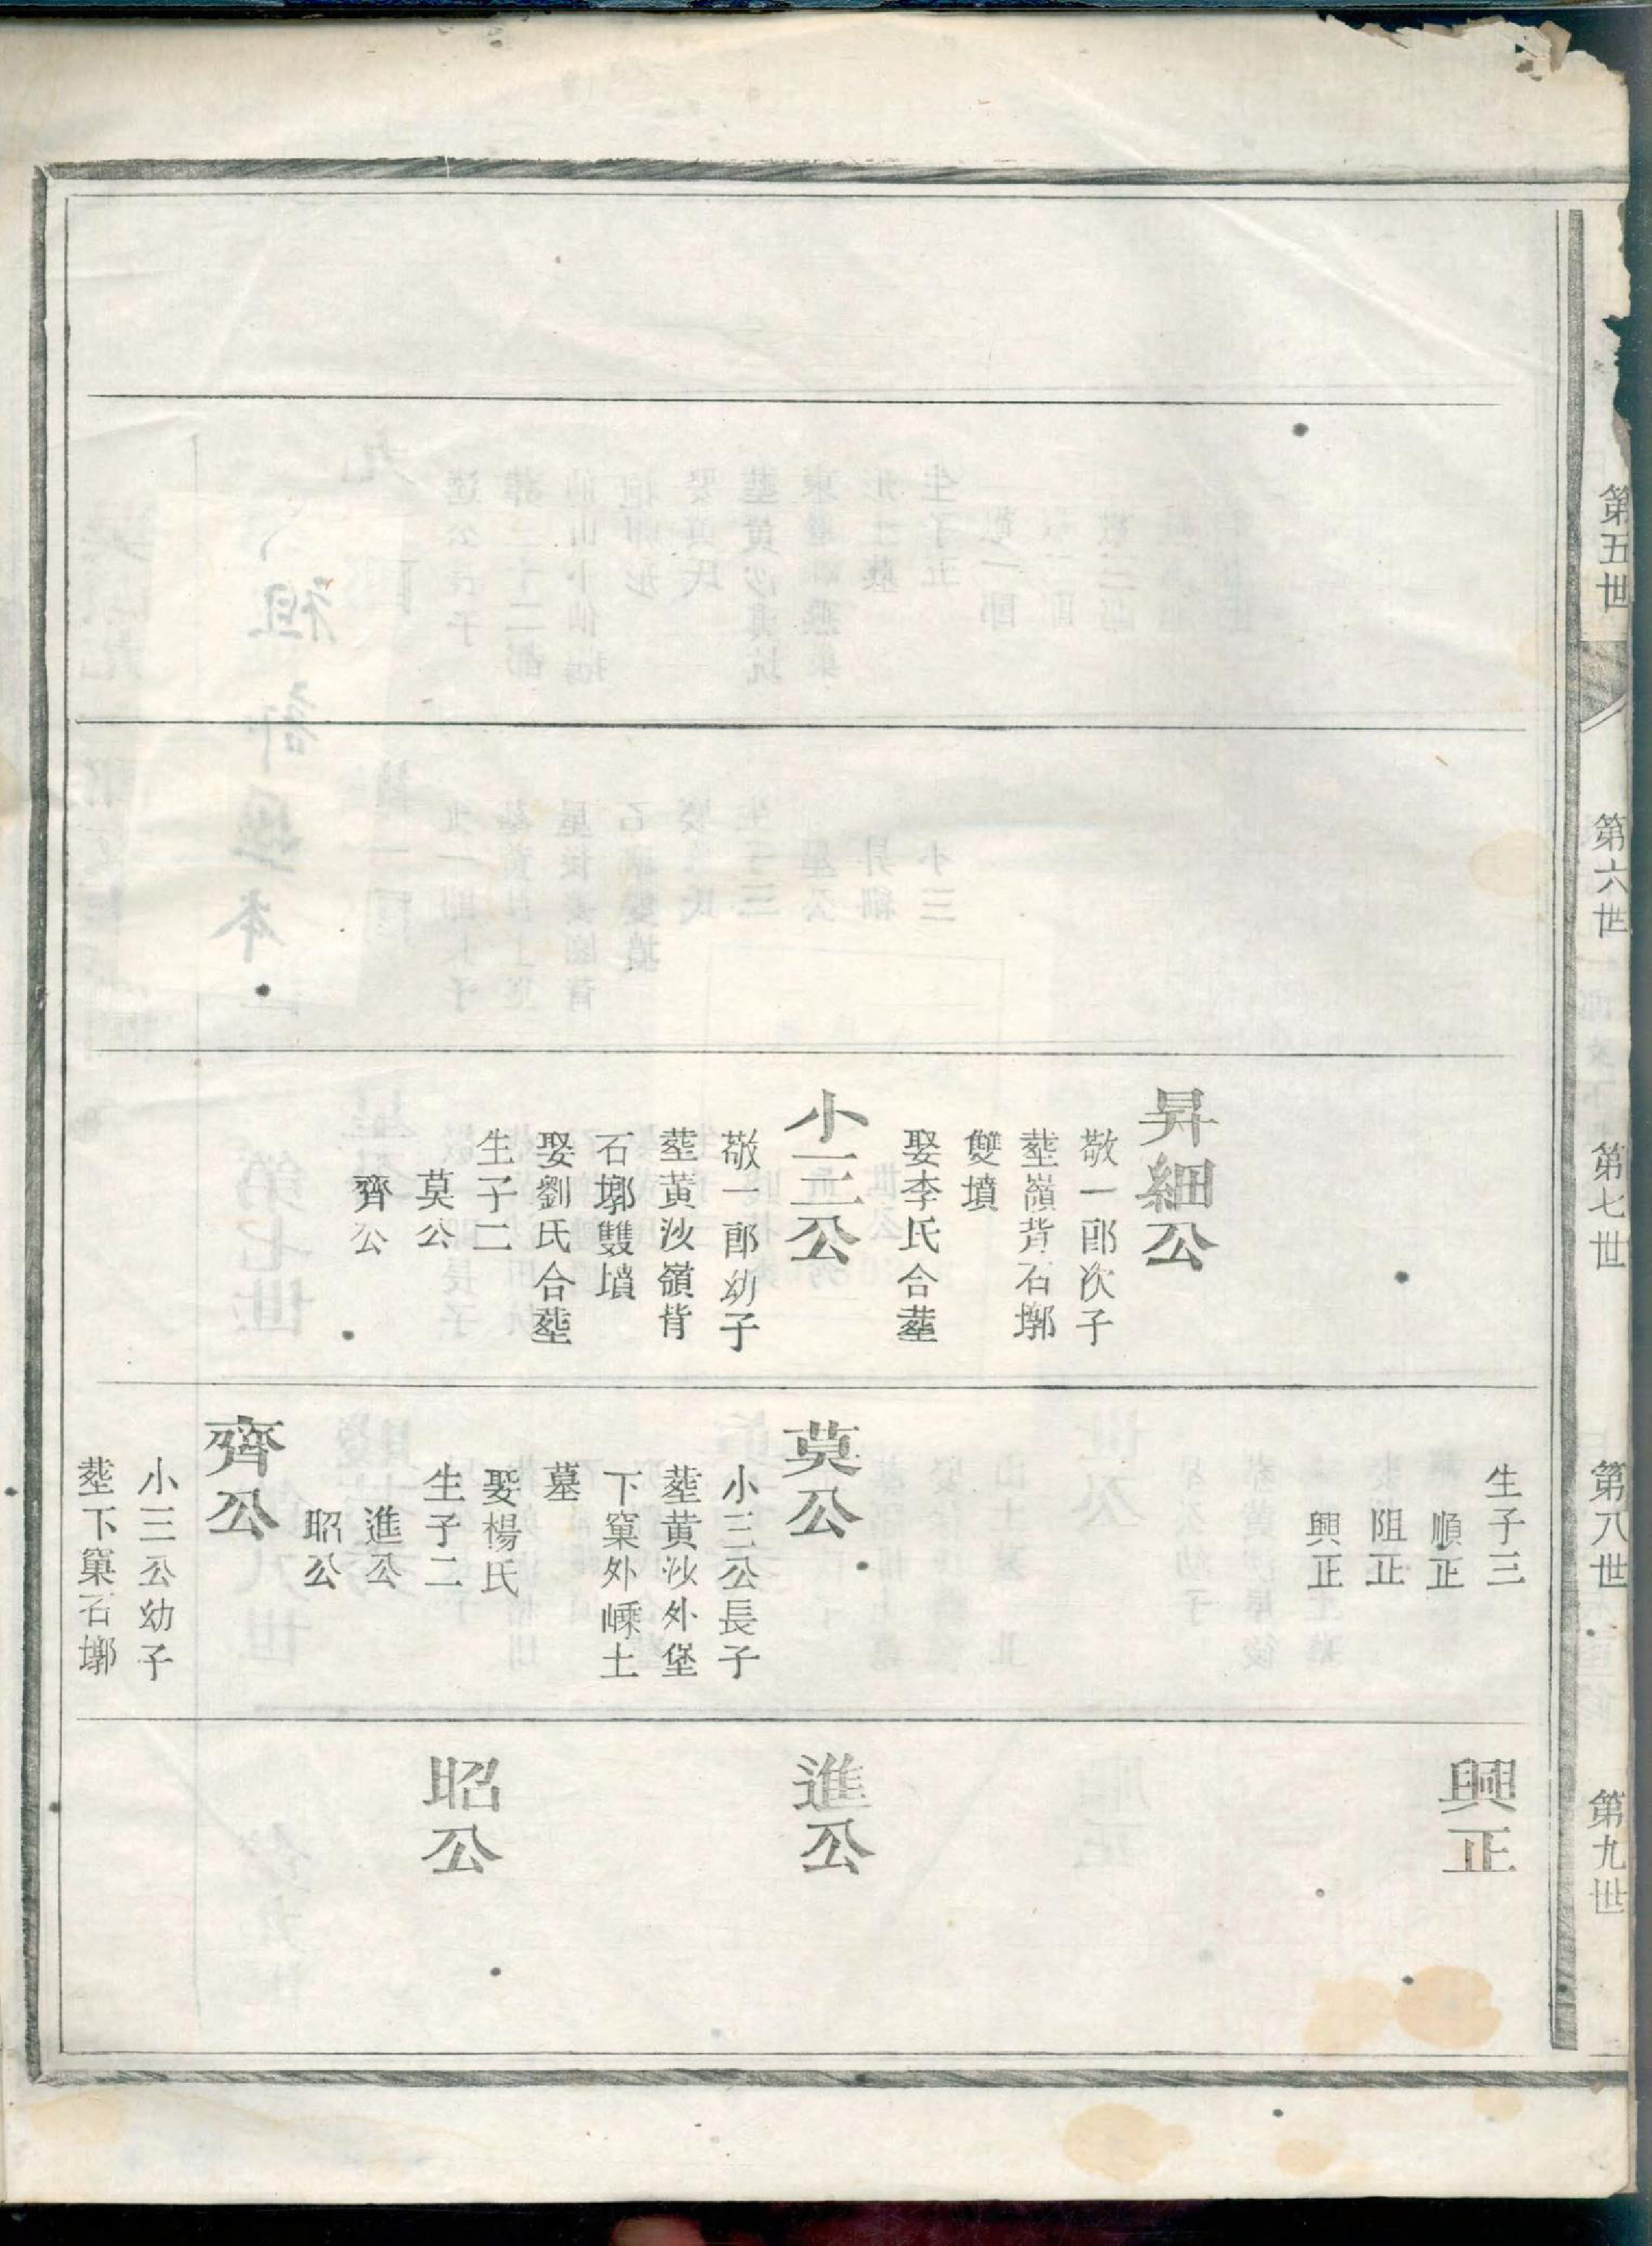 第五世
第六世
第七世
第八世
第九世
昇細公
敬一郎次子
塟嶺背石墎
雙墳
娶李氏合塟
小三公
敬一郎幼子
塟黄沙嶺背
石墎雙墳
娶劉氏合塟
生子二
莫公
齊公
生子三
順正
阻正
興正
莫公
小三公長子
塟黄沙外堡
下窠外嵊土
墓
娶楊氏
生子二
進公
昭公
齊公
小三公幼子
塟下窠石墎
興正
進公
昭公